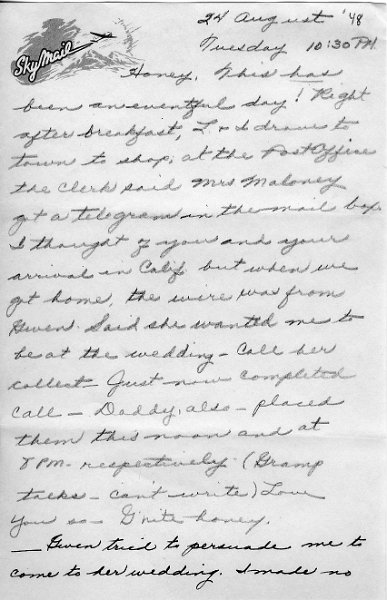 24 August '48
Tuesday 10:30 PM.
Sky Mail
Honey, This has
been an eventful day! Right
after breakfast, L & I drove to
town to shop; at the Post Office
the Clerk said Mrs Maloney
got a telegram in the mail box.
I thought of you and your
arrival in Calif but when we
got home, the wire was from
Gwen. Said she wanted me to
be at the wedding - Call her
collect - Just now completed
call - Daddy, also - placed
them this noon and at
8 PM - respectively (Gramp
talks - can't write) Love
you so - G'nite honey.
— Gwen tried to persuade me to
come to her wedding. I made no